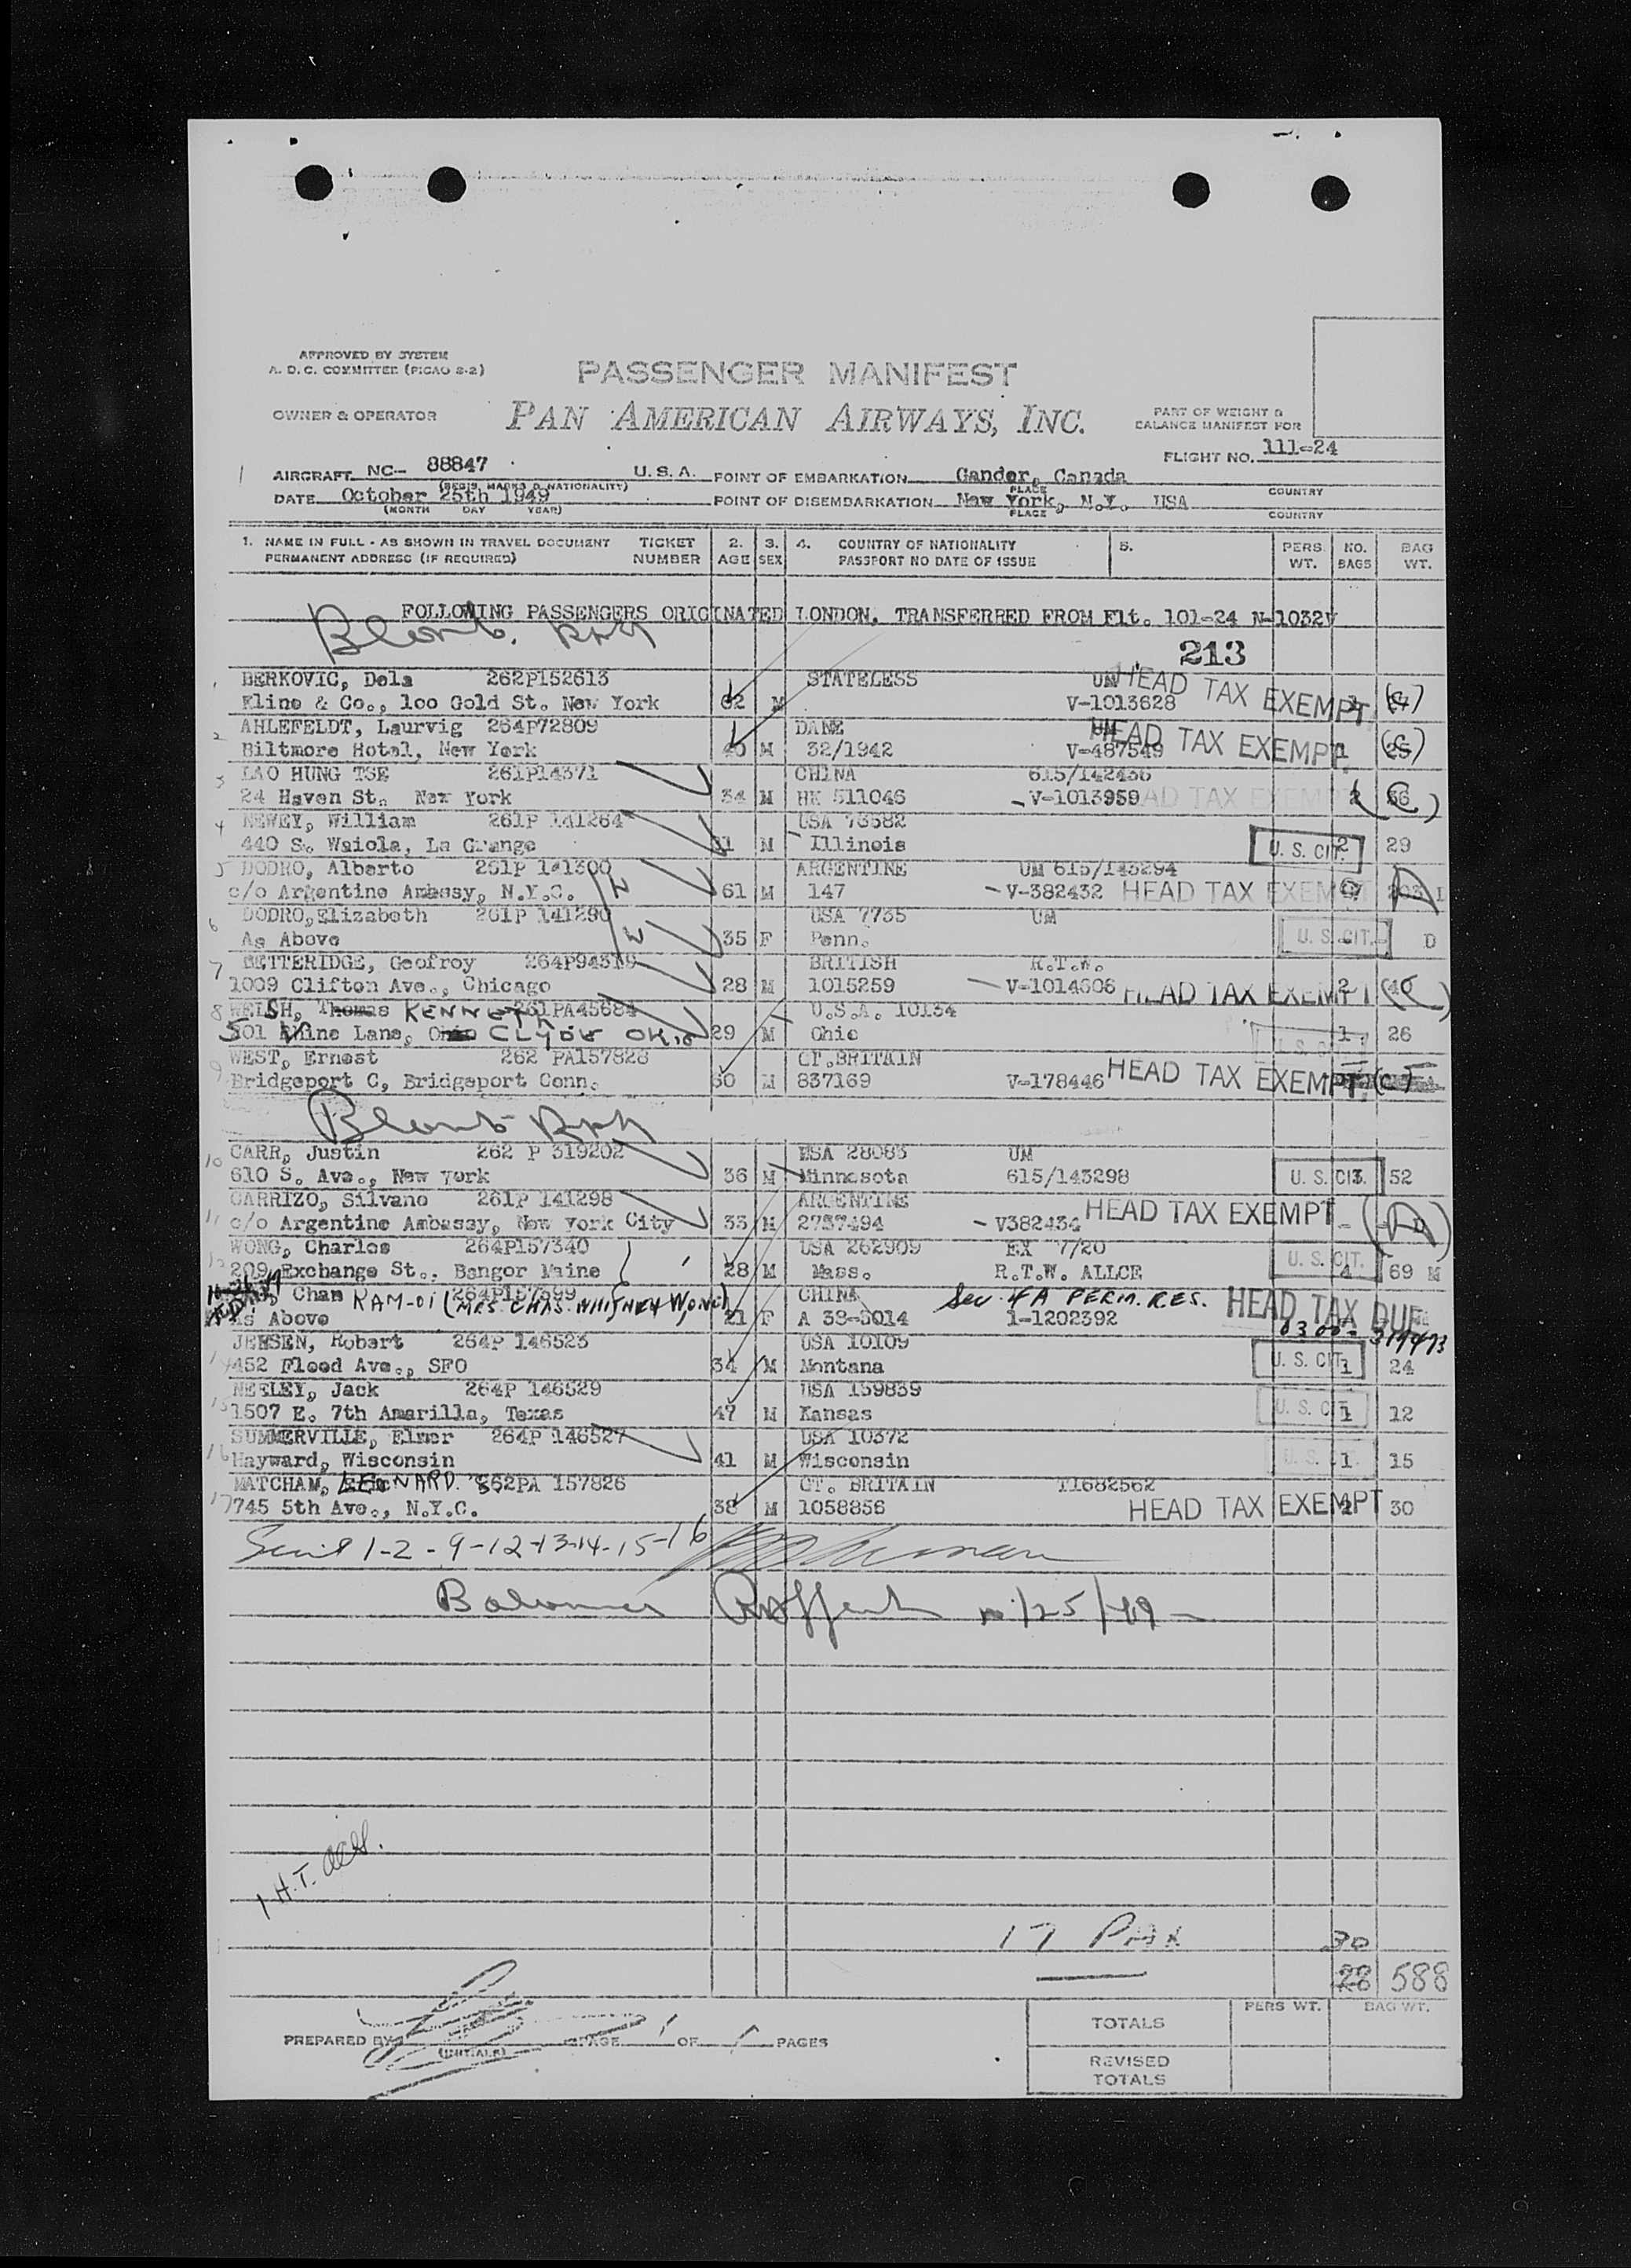 APPROVED BY SYSTEM
A. D. C. COMMITTEE (PICAO 2-2)
PASSENGER MANIFEST
OWNER & OPERATOR PAN AMERICAN AIRWAYS, INC.
PART OF WEIGHT &
BALANCE MANIFEST FOR
FLIGHT NO. 111-24
AIRCRAFT NC- 88847 U.S.A. POINT OF EMBARKATION Gander, Canada
(REGIS. MARKS & NATIONALITY) PLACE COUNTRY
DATE October 25th 1949 POINT OF DISEMBARKATION New York, N.Y. USA
(MONTH DAY YEAR) PLACE COUNTRY
1. NAME IN FULL - AS SHOWN IN TRAVEL DOCUMENT TICKET 2. 3. 4. COUNTRY OF NATIONALITY 5. PERS. NO. BAG
PERMANENT ADDRESS (IF REQUIRED) NUMBER AGE SEX PASSPORT NO DATE OF ISSUE WT. BAGS WT.
FOLLOWING PASSENGERS ORIGINATED LONDON. TRANSFERRED FROM Flt. 101-24 N-1032V
213
BERKOVIC, Dela 262P152613 STATELESS UM HEAD TAX EXEMPT
Eline & Co., 100 Gold St. New York 62 M V-1013628
2 AHLEFELDT, Laurvig 264P72809 DANE HEAD TAX EXEMPT
Biltmore Hotel, New York 40 M 32/1942 V-487549 25
3 LAO HUNG TSE 261P14371 CHINA 615/142436
24 Haven St. New York 34 M HK 511046 V-1013959 HEAD TAX EXEMPT 2
4 NEWEY, William 261P 141264 USA 73582
440 S. Waiola, La Grange 31 M Illinois U. S. CIT. 2 29
5 DODRO, Alberto 261P 141300 ARGENTINE UM 615/143294
c/o Argentine Ambassy, N.Y.C. 61 M 147 V-382432 HEAD TAX EXEMPT
6 DODRO,Elizabeth 261P 141290 USA 7735 UM
As Above 35 F Penn. U. S. CIT. D
7 BETTERIDGE, Geofroy 264P94319 BRITISH R.T.W.
1009 Clifton Ave., Chicago 28 M 1015259 V-1014606 HEAD TAX EXEMPT 2 40
8 WELSH, Thomas KENNETH 261PA45684 U.S.A. 10134
501 Vine Lane, CLYDE OHIO 29 M Ohio U. S. CIT. 1 26
9 WEST, Ernest 262 PA157828 GT.BRITAIN
Bridgeport C, Bridgeport Conn. 50 M 837169 V-178446 HEAD TAX EXEMPT
10 CARR, Justin 262 P 319202 USA 28083 UM
610 S. Ave., New York 36 M Minnesota 615/143298 U. S. CIT. 3 52
11 CARRIZO, Silvano 261P 141298 ARGENTINE
c/o Argentine Ambassy, New York City 33 M 2737494 V382434 HEAD TAX EXEMPT
12 WONG, Charles 264P157340 USA 262909 EX 7/20
209 Exchange St., Bangor Maine 28 M Mass. R.T.W. ALLCE U. S. CIT. 4 69 M
Chan KAM-OI (MRS. CHAS. WHITNEY WONG) 264P157399 CHINA Sec. 4A PERM. RES. HEAD TAX DUE
As Above 21 F A 38-3014 1-1202392
14 JENSEN, Robert 264P 146523 USA 10109
452 Flood Ave., SFO 34 M Montana U. S. CIT. 1 24
15 NEELEY, Jack 264P 146529 USA 159839
1507 E. 7th Amarilla, Texas 47 M Kansas U. S. CIT. 1 12
16 SUMMERVILLE, Elmer 264P 146527 USA 10372
Hayward, Wisconsin 41 M Wisconsin U. S. CIT. 1 15
MATCHAM, LEONARD 262PA 157826 GT. BRITAIN T1682562
17 745 5th Ave., N.Y.C. 38 M 1058856 HEAD TAX EXEMPT 30
1-2-9-12-13-14-15-16
10/25/49
1 H.T.
17 PAX 30
28 588
PREPARED BY PAGE 1 OF 1 PAGES
(INITIALS)
PERS WT. BAG WT.
TOTALS
REVISED
TOTALS